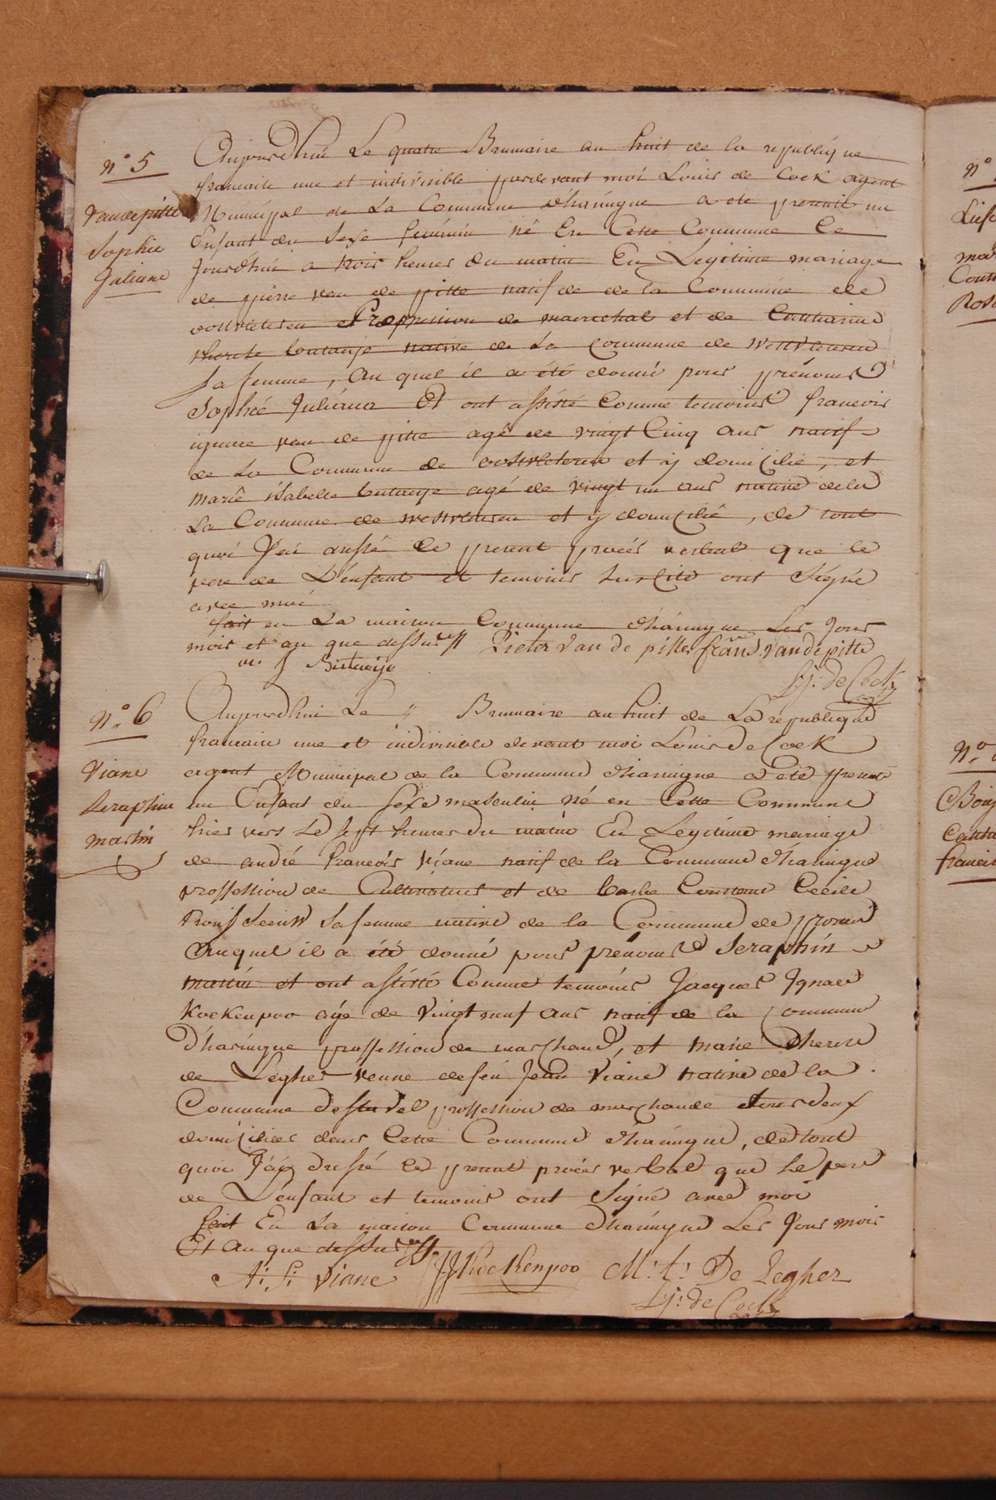 n° 5
Vandepitte
Sophie
Juliane
Aujourdhui Le quatre Brumaire an huit de la republique
francaise une et indivisible pardevant moi Louis de Cock agent
Municipal de La Commune d'haringue a ete presenté un
Enfant du Sexe feminin né En Cette Commune Ce
Jourdhui a trois heures du matin En Legitime mariage
de pierre van de pitte natif de de la Commune de
oostvleteren et Proffession de marechal et de
butaeye native de La Commune de westvleteren
sa femme, Au quel il a été donné pour prénoms
Sophié Juliana Et ont assisté Comme temoins francois
ignace van de pitte agé de vingt Cinq ans natif
de La Commune de oostvleteren et ÿ domicilié, et
marie isabelle butaeye agé de vingt un ans native de la
La Commune de westvleteren et ÿ domicilié, de tout
quoi J'ai dressé le present procés verbal que le
pere de L'enfant et temoins Suscité ont Signé
avec moi
fait en La maison Commune d'haringue Les Jour
mois et an que dessus Pieter Van de pitte fran vandepitte
Butaeije
L: J: de Cock
N.° 6
Viane
Seraphin
martin
Aujourdhui Le Brumaire an huit de La republique
francaise une et indivisible devant moi Louis De Cock
agent Municipal de la Commune d'haringue a Eté presenté
un Enfant du Sexe masculin né en Cette Commune
hier vers Le sept heures du matin En Legitime mariage
de andré francois Viane natif de la Commune d'haringue
proffession de Cultivateur et de Constance Cecile
sa femme native de la Commune de
Auquel il a été donné pour prénoms Seraphin
martin et ont assisté Comme temoins Jacques Ignace
Kockenpoo agé de Vingt neuf ans natif de la Commune
D'haringue proffession de marchand, et marie therese
de Legher veuve de feu Jean Viane native de la
Commune de proffession de marchande tous deux
domiciliés dans Cette Commune d'haringue, de tout
quoi J'ái dressé le present procés verbal que Le pere
de L'enfant et temoins ont Signé avec moi
fait En La maison Commune d'haringue Les Jour mois
Et An que dessus
A: f: Viane JJ Kockenpoo M: t: De Legher
L: J: de Cock